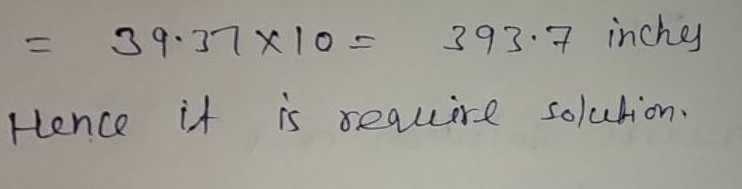 = 39.37 × 10 = 393.7 inches
Hence it is require solution.